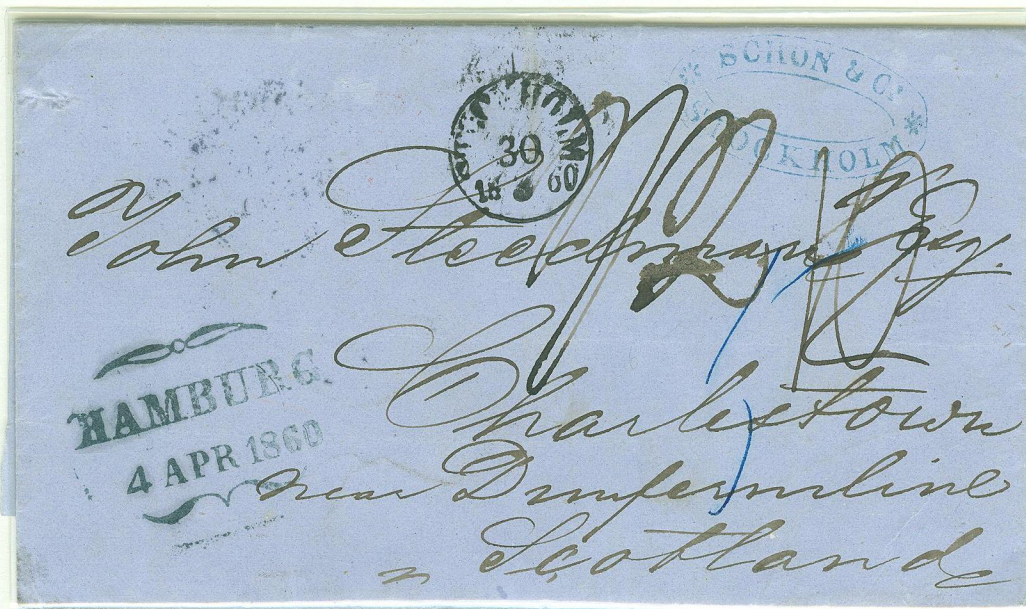 SCHÖN & Co.
STOCKHOLM
STOCKHOLM
30
18 3 60
John Steedman Esq.
Charlestown
near Dunfermline
Scotland
HAMBURG.
4 APR 1860